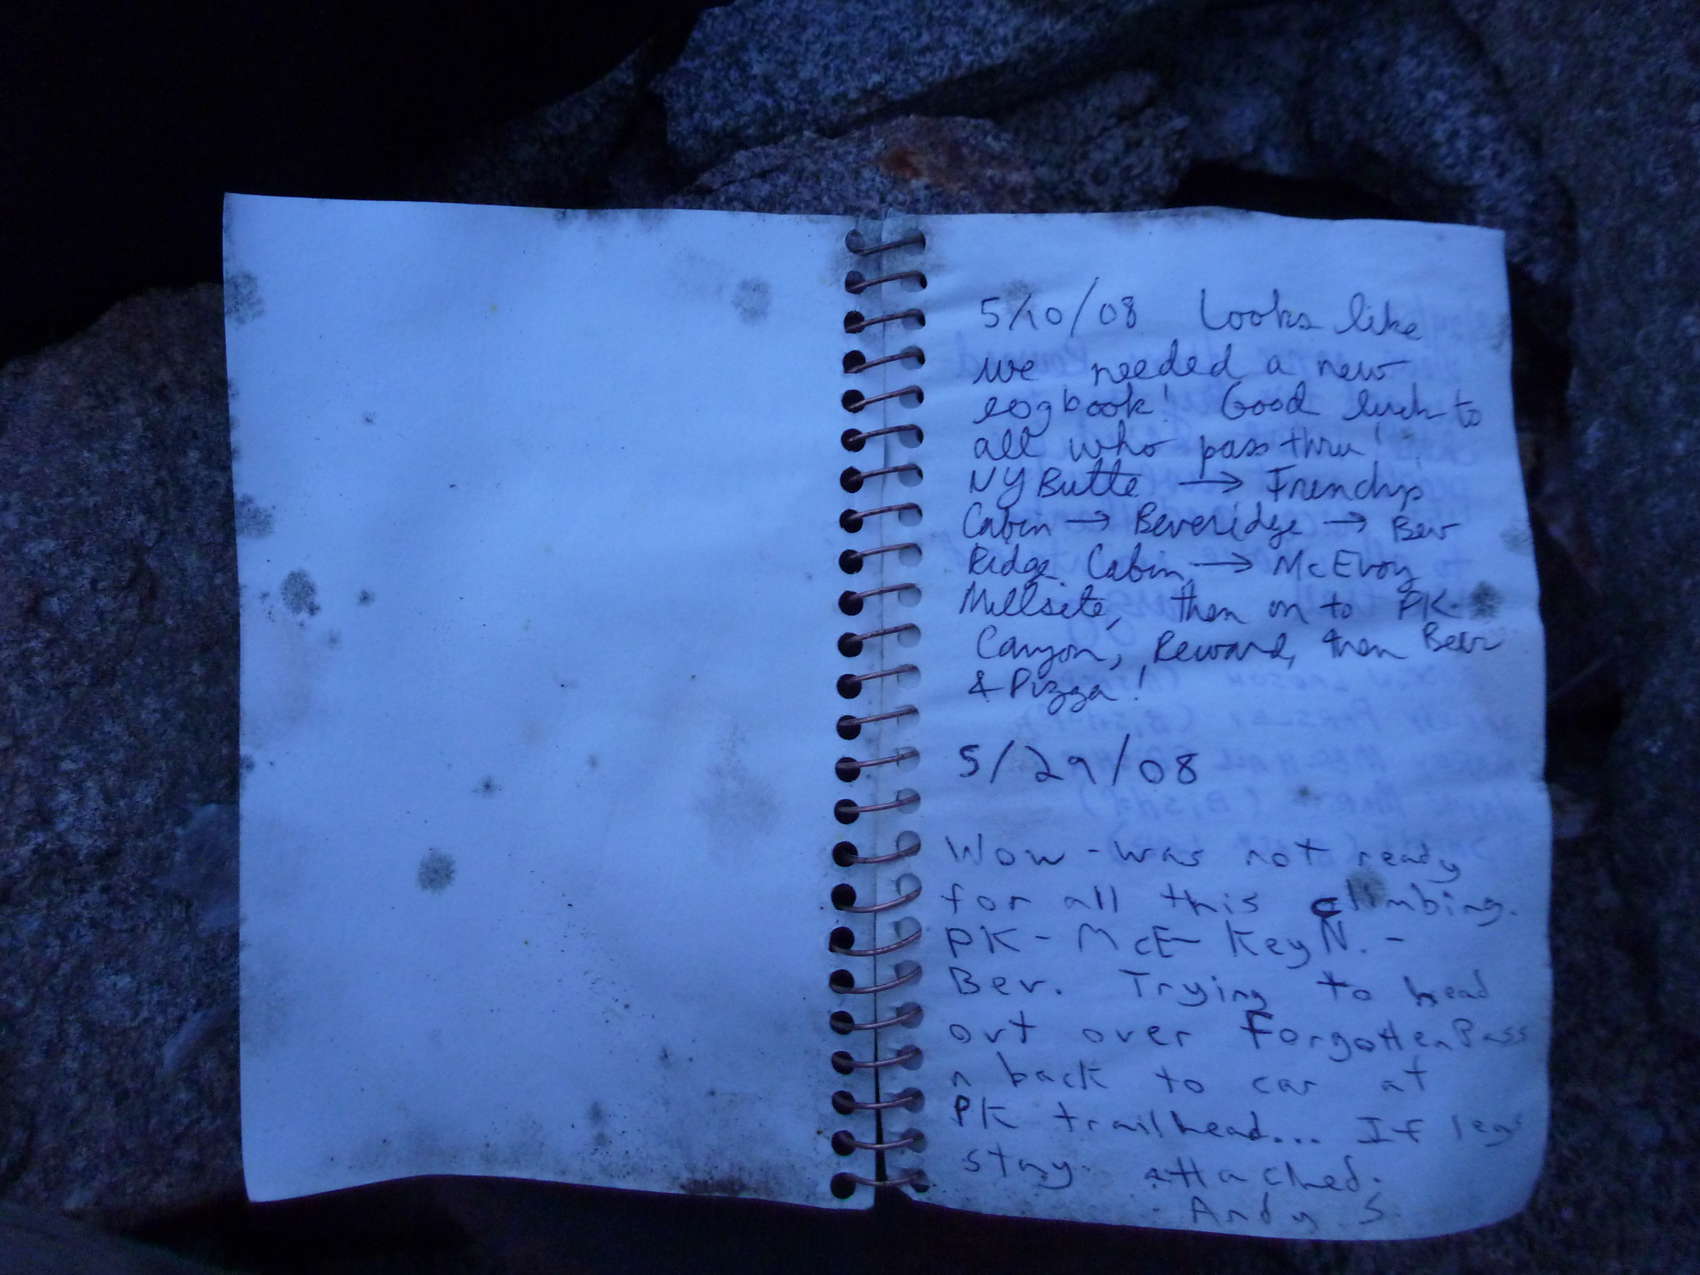 5/10/08 Looks like
we needed a new
logbook! Good luck to
all who pass thru!
NY Butte → Frenchys
Cabin → Beveridge → Bev
Ridge Cabin → McElvoy
Millsite, then on to PK.
Canyon, Reward, then Beer
& Pizza!
5/29/08
Wow - was not ready
for all this climbing.
PK - McE - Key N. -
Bev. Trying to head
out over Forgotten Pass
n back to car at
PK trailhead... If legs
stay attached.
Andy S.